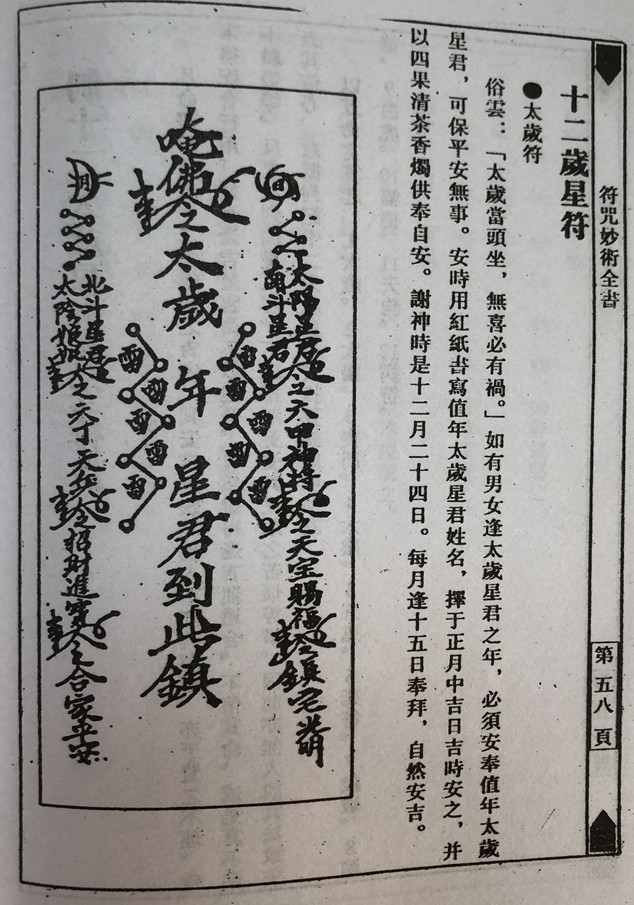 符咒妙術全書
第五八頁
十二歲星符
●太歲符
俗雲：「太歲當頭坐，無喜必有禍。」如有男女逢太歲星君之年，必須安奉值年太歲
星君，可保平安無事。安時用紅紙書寫值年太歲星君姓名，擇于正月中吉日吉時安之，并
以四果清茶香燭供奉自安。謝神時是十二月二十四日。每月逢十五日奉拜，自然安吉。
太陽星君
南斗星君
之六甲神將
天官賜福
鎮宅光明
唵佛
太歲 年 星君到此鎮
雷雷雷
雷雷雷
北斗星君
太陰娘娘
之六丁天兵
招財進寶
合家平安